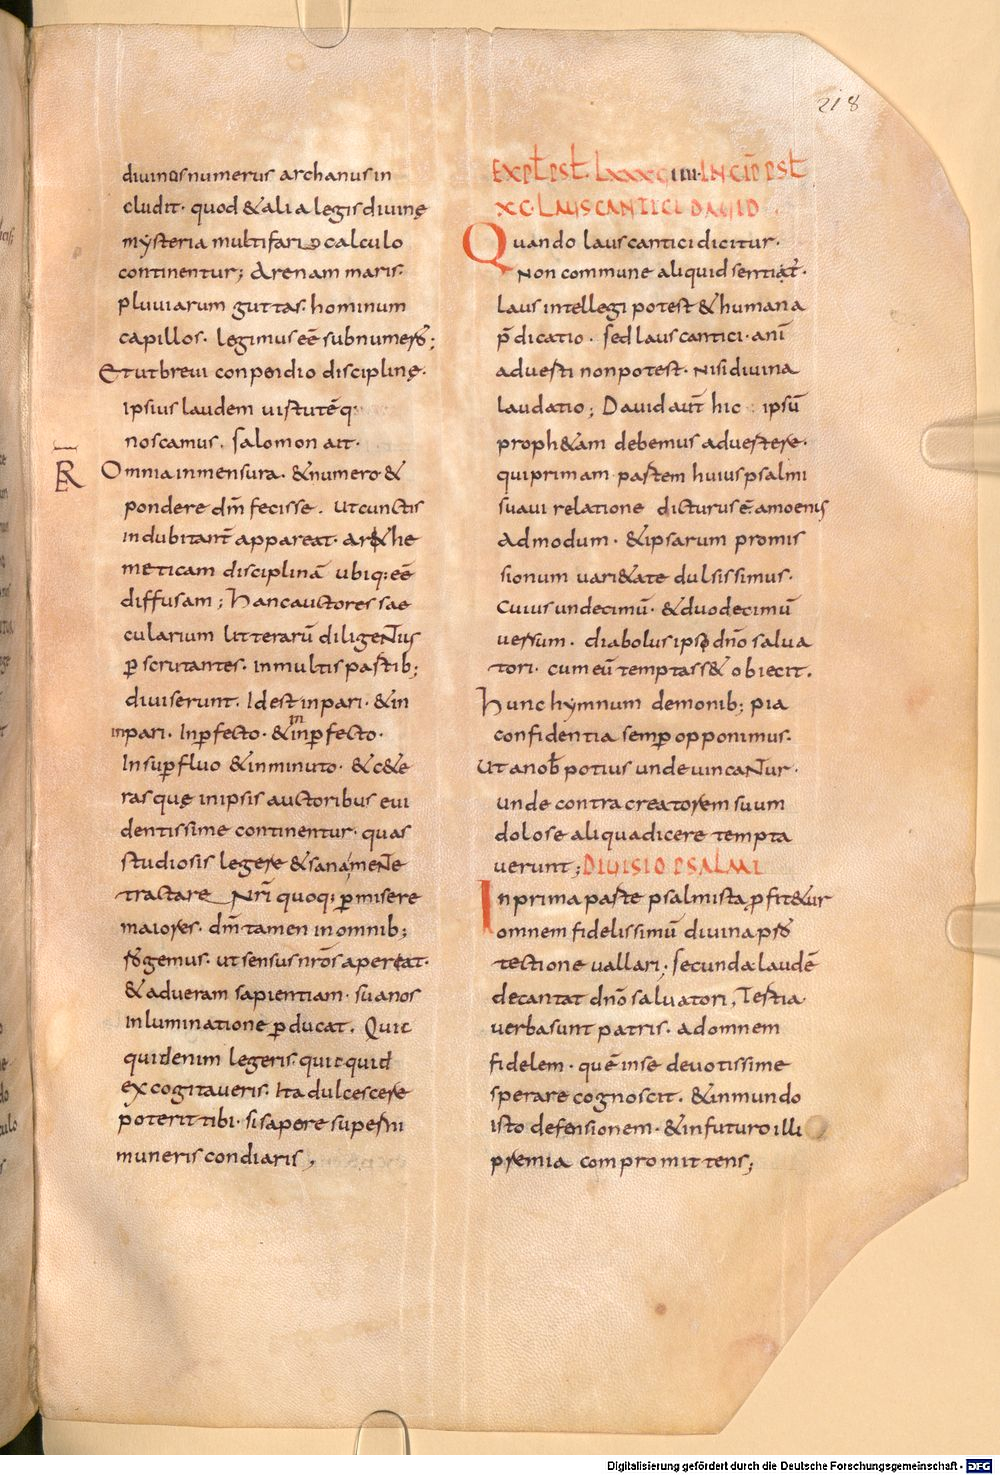 218
diuinus numerus archanus in
cludit· quod & alia legis diuinę
mysteria multifario calculo
continentur; Arenam maris·
pluuiarum guttas· hominum
capillos· legimus eē sub numeris;
Et ut breui conpendio disciplinę·
ipsius laudem uirtutēq·
noscamus. salomon ait·
Omnia in mensura· & numero &
pondere dm̄ fecisse. ut cunctis
indubitant̄ appareat· ar&he
meticam disciplinā ubiq; eē
diffusam; hanc auctores sae
cularium litterarū diligentius
ꝑscrutantes· in multis partib;
diuiserunt. Id est in pari· & in
inpari. In ꝑfecto· & in inꝑfecto·
In suꝑfluo & in minuto· & c&e
ras quę in ipsis auctoribus eui
dentissime continentur· quas
studiosis legere & sana mente
tractare Nr̄i quoq; ꝑmisere
maiores· dm̄ tamen in omnib;
rogemus· ut sensus nr̄os aperiat·
& ad ueram sapientiam· suanos
inluminatione ꝑducat. Quic
quid enim legeris· quicquid
excogitaueris· Ita dulcescere
poterit tibi· si sapore superni
muneris condiaris;
EXPL̄ PSL̄· LXXXVIIII· INCIP̄ PSL̄
XC· LAUS CANTICI DAUID
Quando laus cantici dicitur·
Non commune aliquid sentiat̄·
laus intellegi potest & humana
p̄dicatio· sed laus cantici· ani
aduerti non potest· nisi diuina
laudatio; Dauid aut̄ hic ipsū
proph&am debemus aduertere·
qui primam partem huius psalmi
suaui relatione dicturus ē· amoenis
Admodum· & ipsarum promis
sionum uari&ate dulsissimus·
Cuius undecimū· & duodecimū
uersum· diabolus ipso dn̄o salua
tori· cum eū temptass& obiecit.
hunc hymnum demonib; pia
confidentia semꝑ opponimus·
Ut a nob̄ potius unde uincantur·
unde contra creatorem suum
dolose aliqua dicere tempta
uerunt; DIUISIO PSALMI
In prima parte psalmista ꝓfit&ur
omnem fidelissimū diuina pro
tectione uallari; secunda laudē
decantat dn̄o saluatori, Tertia
uerba sunt patris· ad omnem
fidelem· quē in se deuotissime
sperare cognoscit· & in mundo
isto defensionem· & in futuro illi
premia compromittens;
Digitalisierung gefördert durch die Deutsche Forschungsgemeinschaft - DFG